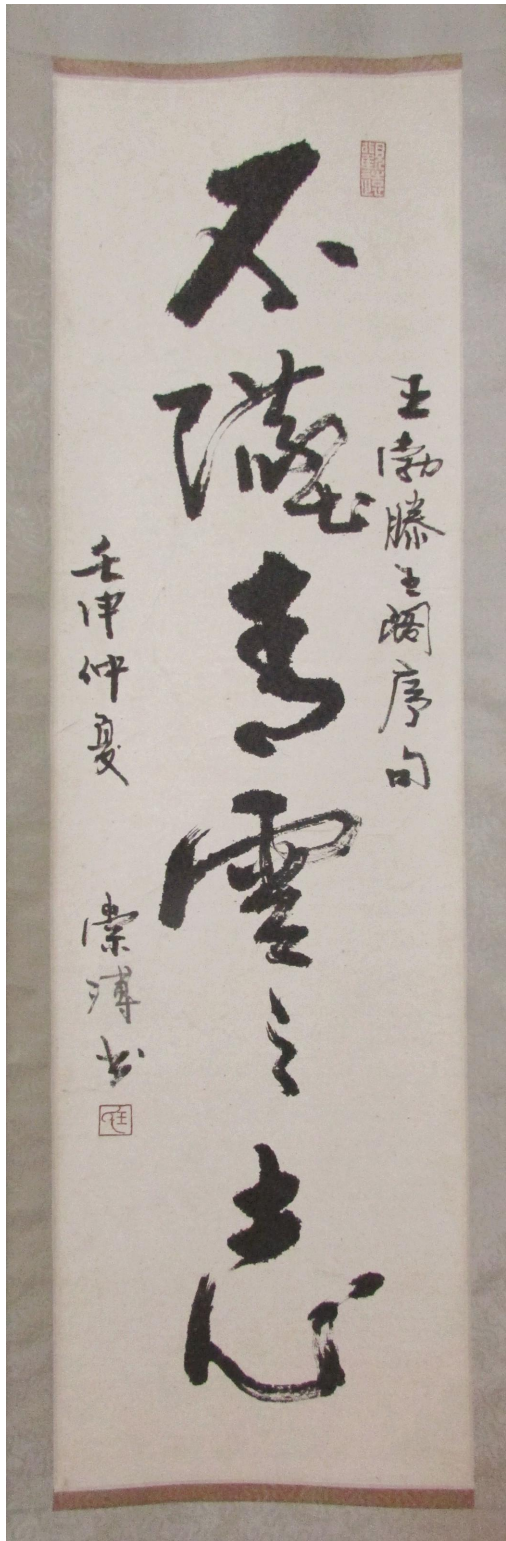 王勃滕王閣序句
不墜青雲之志
壬申仲夏 書